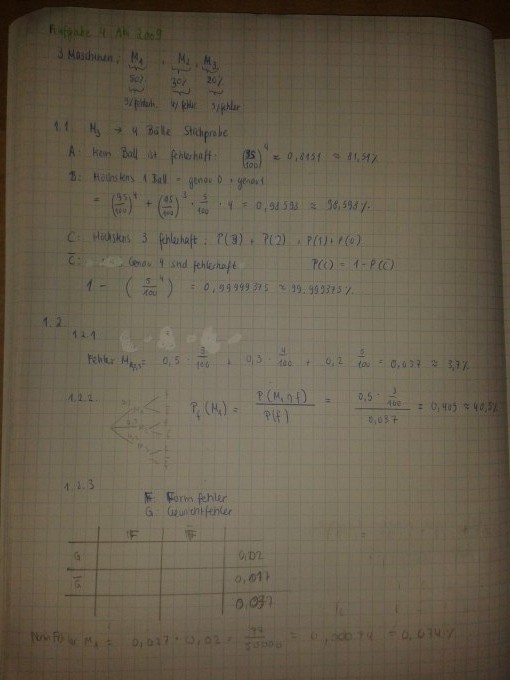 Aufgabe 4 2009
3 Maschinen: M₁ , M₂ , M₃
50% 30% 20%
3% fehlerh. 4% fehler 5% fehler
1.1. M₃ → 4 Bälle Stichprobe
A: Kein Ball ist fehlerhaft: (95/100)⁴ ≈ 0,8151 ≈ 81,51%
B: Höchstens 1 Ball - genau 0 + genau 1
= (95/100)⁴ + (95/100)³ · 5/100 · 4 = 0,98598 ≈ 98,598%
C: Höchstens 3 fehlerhaft: P(3) + P(2) + P(1) + P(0)
C̄: Genau 4 sind fehlerhaft P(C) = 1 - P(C̄)
1 - (5/100⁴) = 0,99999375 ≈ 99,999375%
1.2.
1.2.1
Fehler = 0,5 · 3/100 + 0,3 · 4/100 + 0,2 · 5/100 = 0,037 ≈ 3,7%
1.2.2. P_f(M₁) = P(M₁∩f)/P(f) = 0,5 · 3/100 / 0,037 = 0,405 ≈ 40,5%
1.2.3
F: Formfehler
G: Gewichtfehler
F F̄
G 0,02
Ḡ 0,017
0,037
0,037 · 0,02 = /50000 = 0,00074 = 0,074%